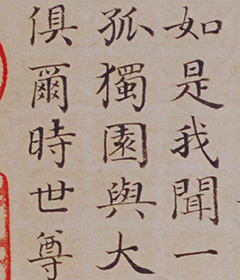 如是我聞一
孤獨園與大
俱爾時世尊